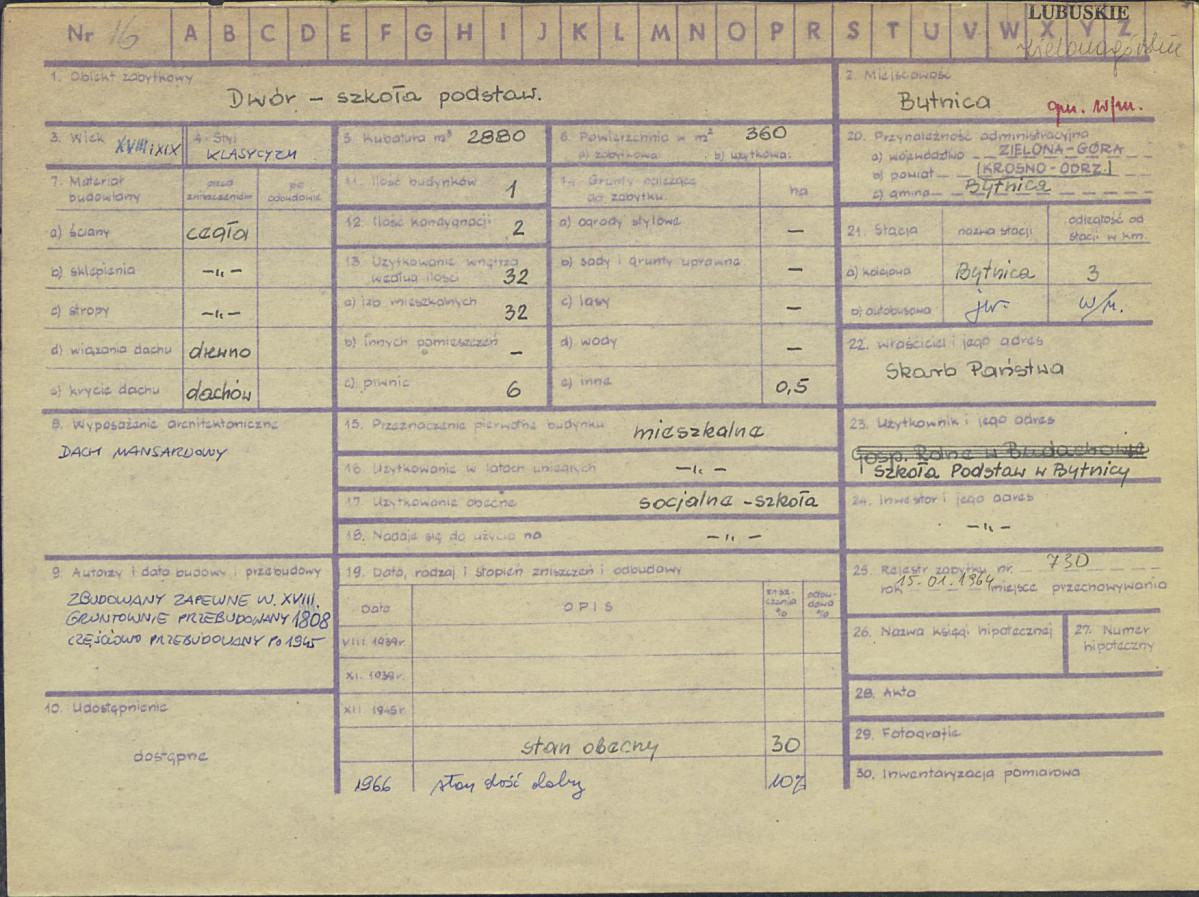 LUBUSKIE
Nr 16 A B C D E F G H I J K L M N O P R S T U V W X Y Z
1. Obiekt zabytkowy
Dwór – szkoła podstaw.
2. Miejscowość
Bytnica gm. w/m.
3. Wiek XVIII i XIX
4. Styl KLASYCYZM
5. Kubatura m³ 2880
6. Powierzchnia w m² 360
a) zabytkowa: b) użytkowa:
20. Przynależność administracyjna
a) województwo ZIELONA-GÓRA
b) powiat [KROSNO-ODRZ.]
c) gmina Bytnica
7. Materiał budowlany
przed zniszczeniem
po odbudowie
a) ściany cegła
b) sklepienia –„–
c) stropy –„–
d) wiązania dachu drewno
e) krycie dachu dachów
11. Ilość budynków 1
12. Ilość kondygnacji 2
13. Użytkowanie wnętrza według ilości 32
a) izb mieszkalnych 32
b) innych pomieszczeń –
c) piwnic 6
14. Grunty należące do zabytku: ha
a) ogrody stylowe –
b) sady i grunty uprawne –
c) lasy –
d) wody –
e) inne 0,5
21. Stacja nazwa stacji odległość od stacji w km.
a) kolejowa Bytnica 3
b) autobusowa jw. w/m.
22. Właściciel i jego adres
Skarb Państwa
8. Wyposażenie architektoniczne
DACH MANSARDOWY
15. Przeznaczenie pierwotne budynku mieszkalne
16. Użytkowanie w latach ubiegłych –„–
17. Użytkowanie obecne socjalne – szkoła
18. Nadaje się do użycia na –„–
23. Użytkownik i jego adres
Gosp. Rolne w Budachowie
szkoła Podstaw w Bytnicy
24. Inwestor i jego adres
–„–
9. Autorzy i data budowy i przebudowy
ZBUDOWANY ZAPEWNE W. XVIII.
GRUNTOWNIE PRZEBUDOWANY 1808
CZĘŚCIOWO PRZEBUDOWANY PO 1945
10. Udostępnienie
dostępne
19. Data, rodzaj i stopień zniszczeń i odbudowy
Data OPIS zniszczenia % odbudowa %
VIII. 1939r.
XI. 1939r.
XII 1945r.
stan obecny 30
1966 stan dość dobry 10%
25. Rejestr zabytku nr. 730
rok 15.01.1964 miejsce przechowywania
26. Nazwa księgi hipotecznej
27. Numer hipoteczny
28. Akta
29. Fotografie
30. Inwentaryzacja pomiarowa